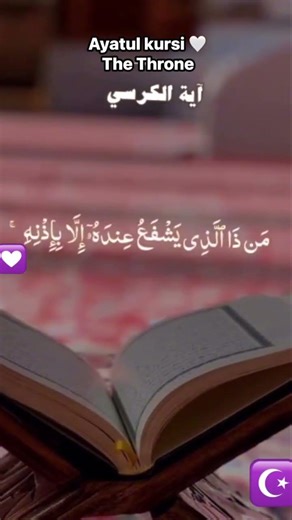 Ayatul kursi 🤍
The Throne
آية الكرسي
مَن ذَا ٱلَّذِى يَشْفَعُ عِندَهُۥٓ إِلَّا بِإِذْنِهِۦ ۚ